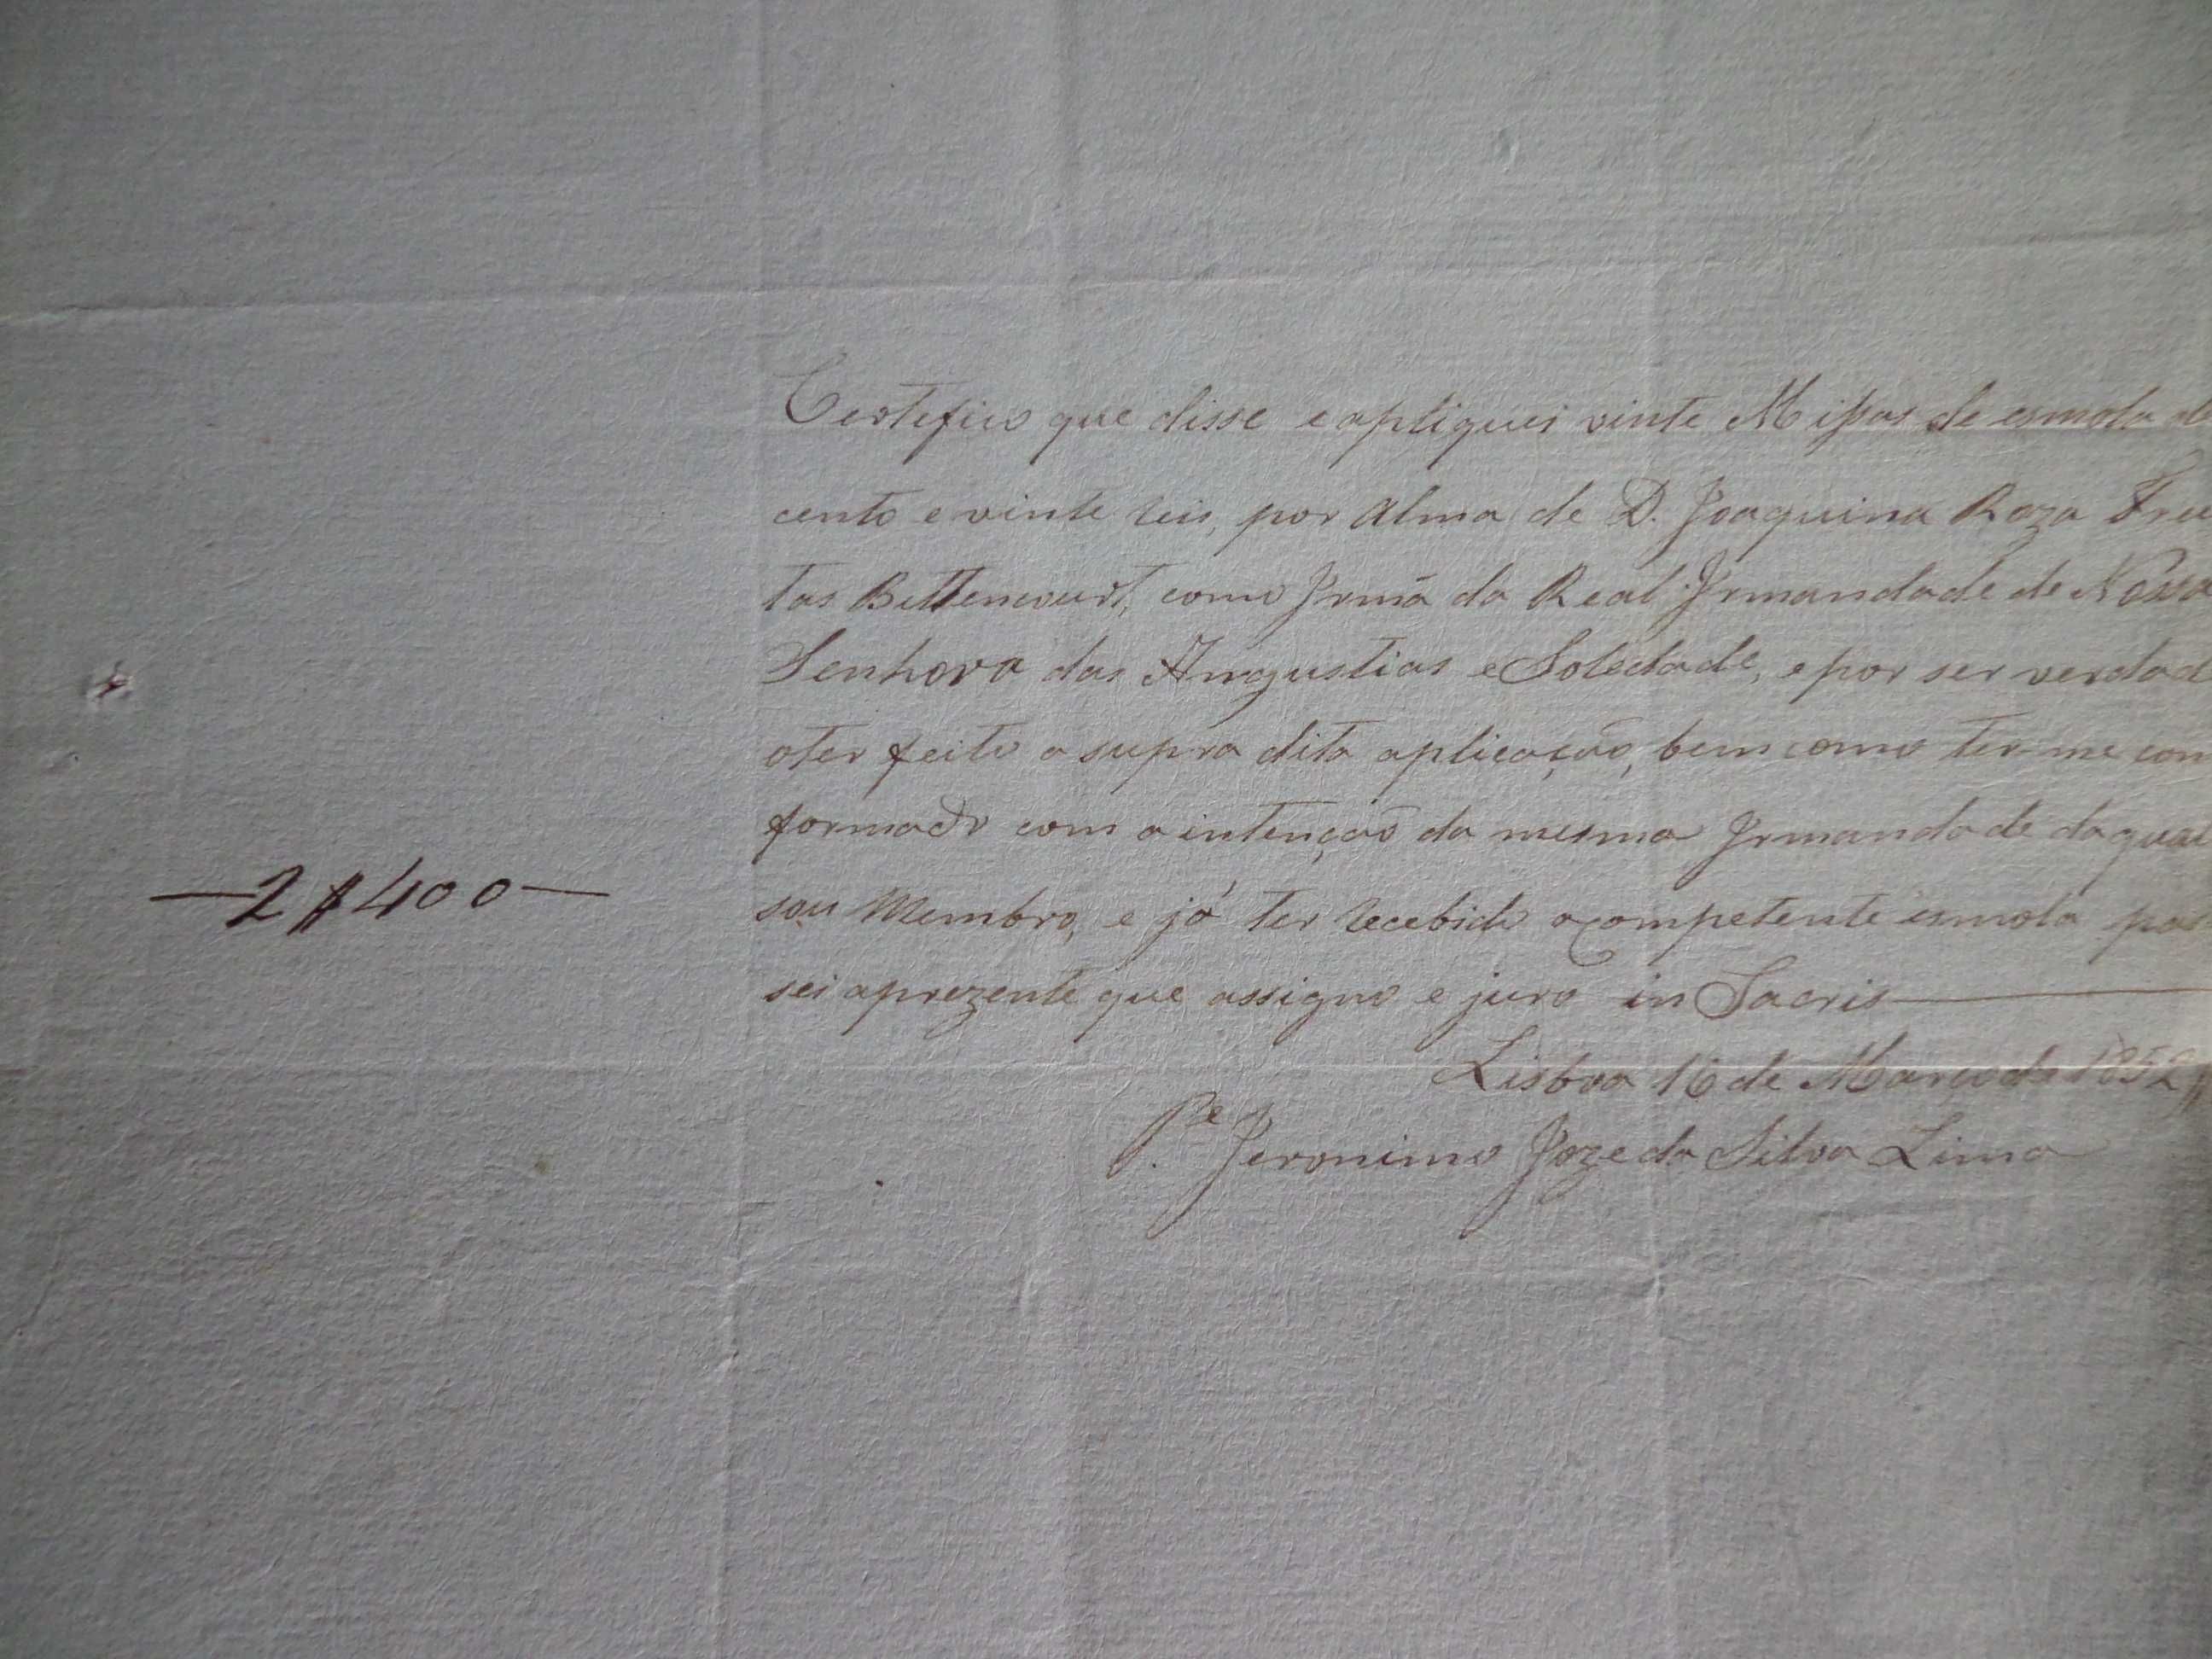 Certefico que disse e apliquei vinte Missas de esmola de
cento e vinte reis, por Alma de D. Joaquina Roza Frei
tas Bettencourt, como Jrmã da Real Jrmandade de Nossa
Senhora das Angustias e Soledade, e por ser verdade
o ter feito a supra dita aplicação, bem como ter-me con
formado com a intenção da mesma Jrmandade da qual
—2$400—
sou Membro, e já ter recebido a competente esmola pas
sei a prezente que assigno e juro in Sacris
Lisboa 16 de Março de 1852
P.e Jeronimo Joze da Silva Lima